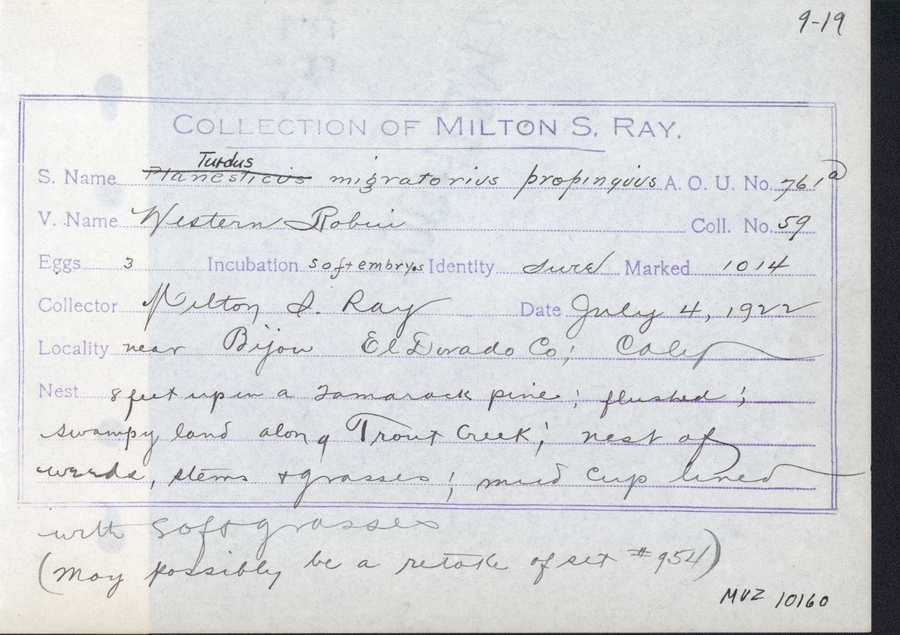 9-19
COLLECTION OF MILTON S. RAY.
Turdus
S. Name Planesticus migratorius propinquus A. O. U. No. 761a
V. Name Western Robin Coll. No. 59
Eggs 3 Incubation soft embryos Identity sure Marked 1014
Collector Milton S. Ray Date July 4, 1922
Locality near Bijou El Dorado Co; Calif
Nest 8 feet up in a Tamarack pine; flushed;
swampy land along Trout Creek; nest of
weeds, stems + grasses; mud cup lined
with soft grasses
(may possibly be a retake of set #954)
MVZ 10160